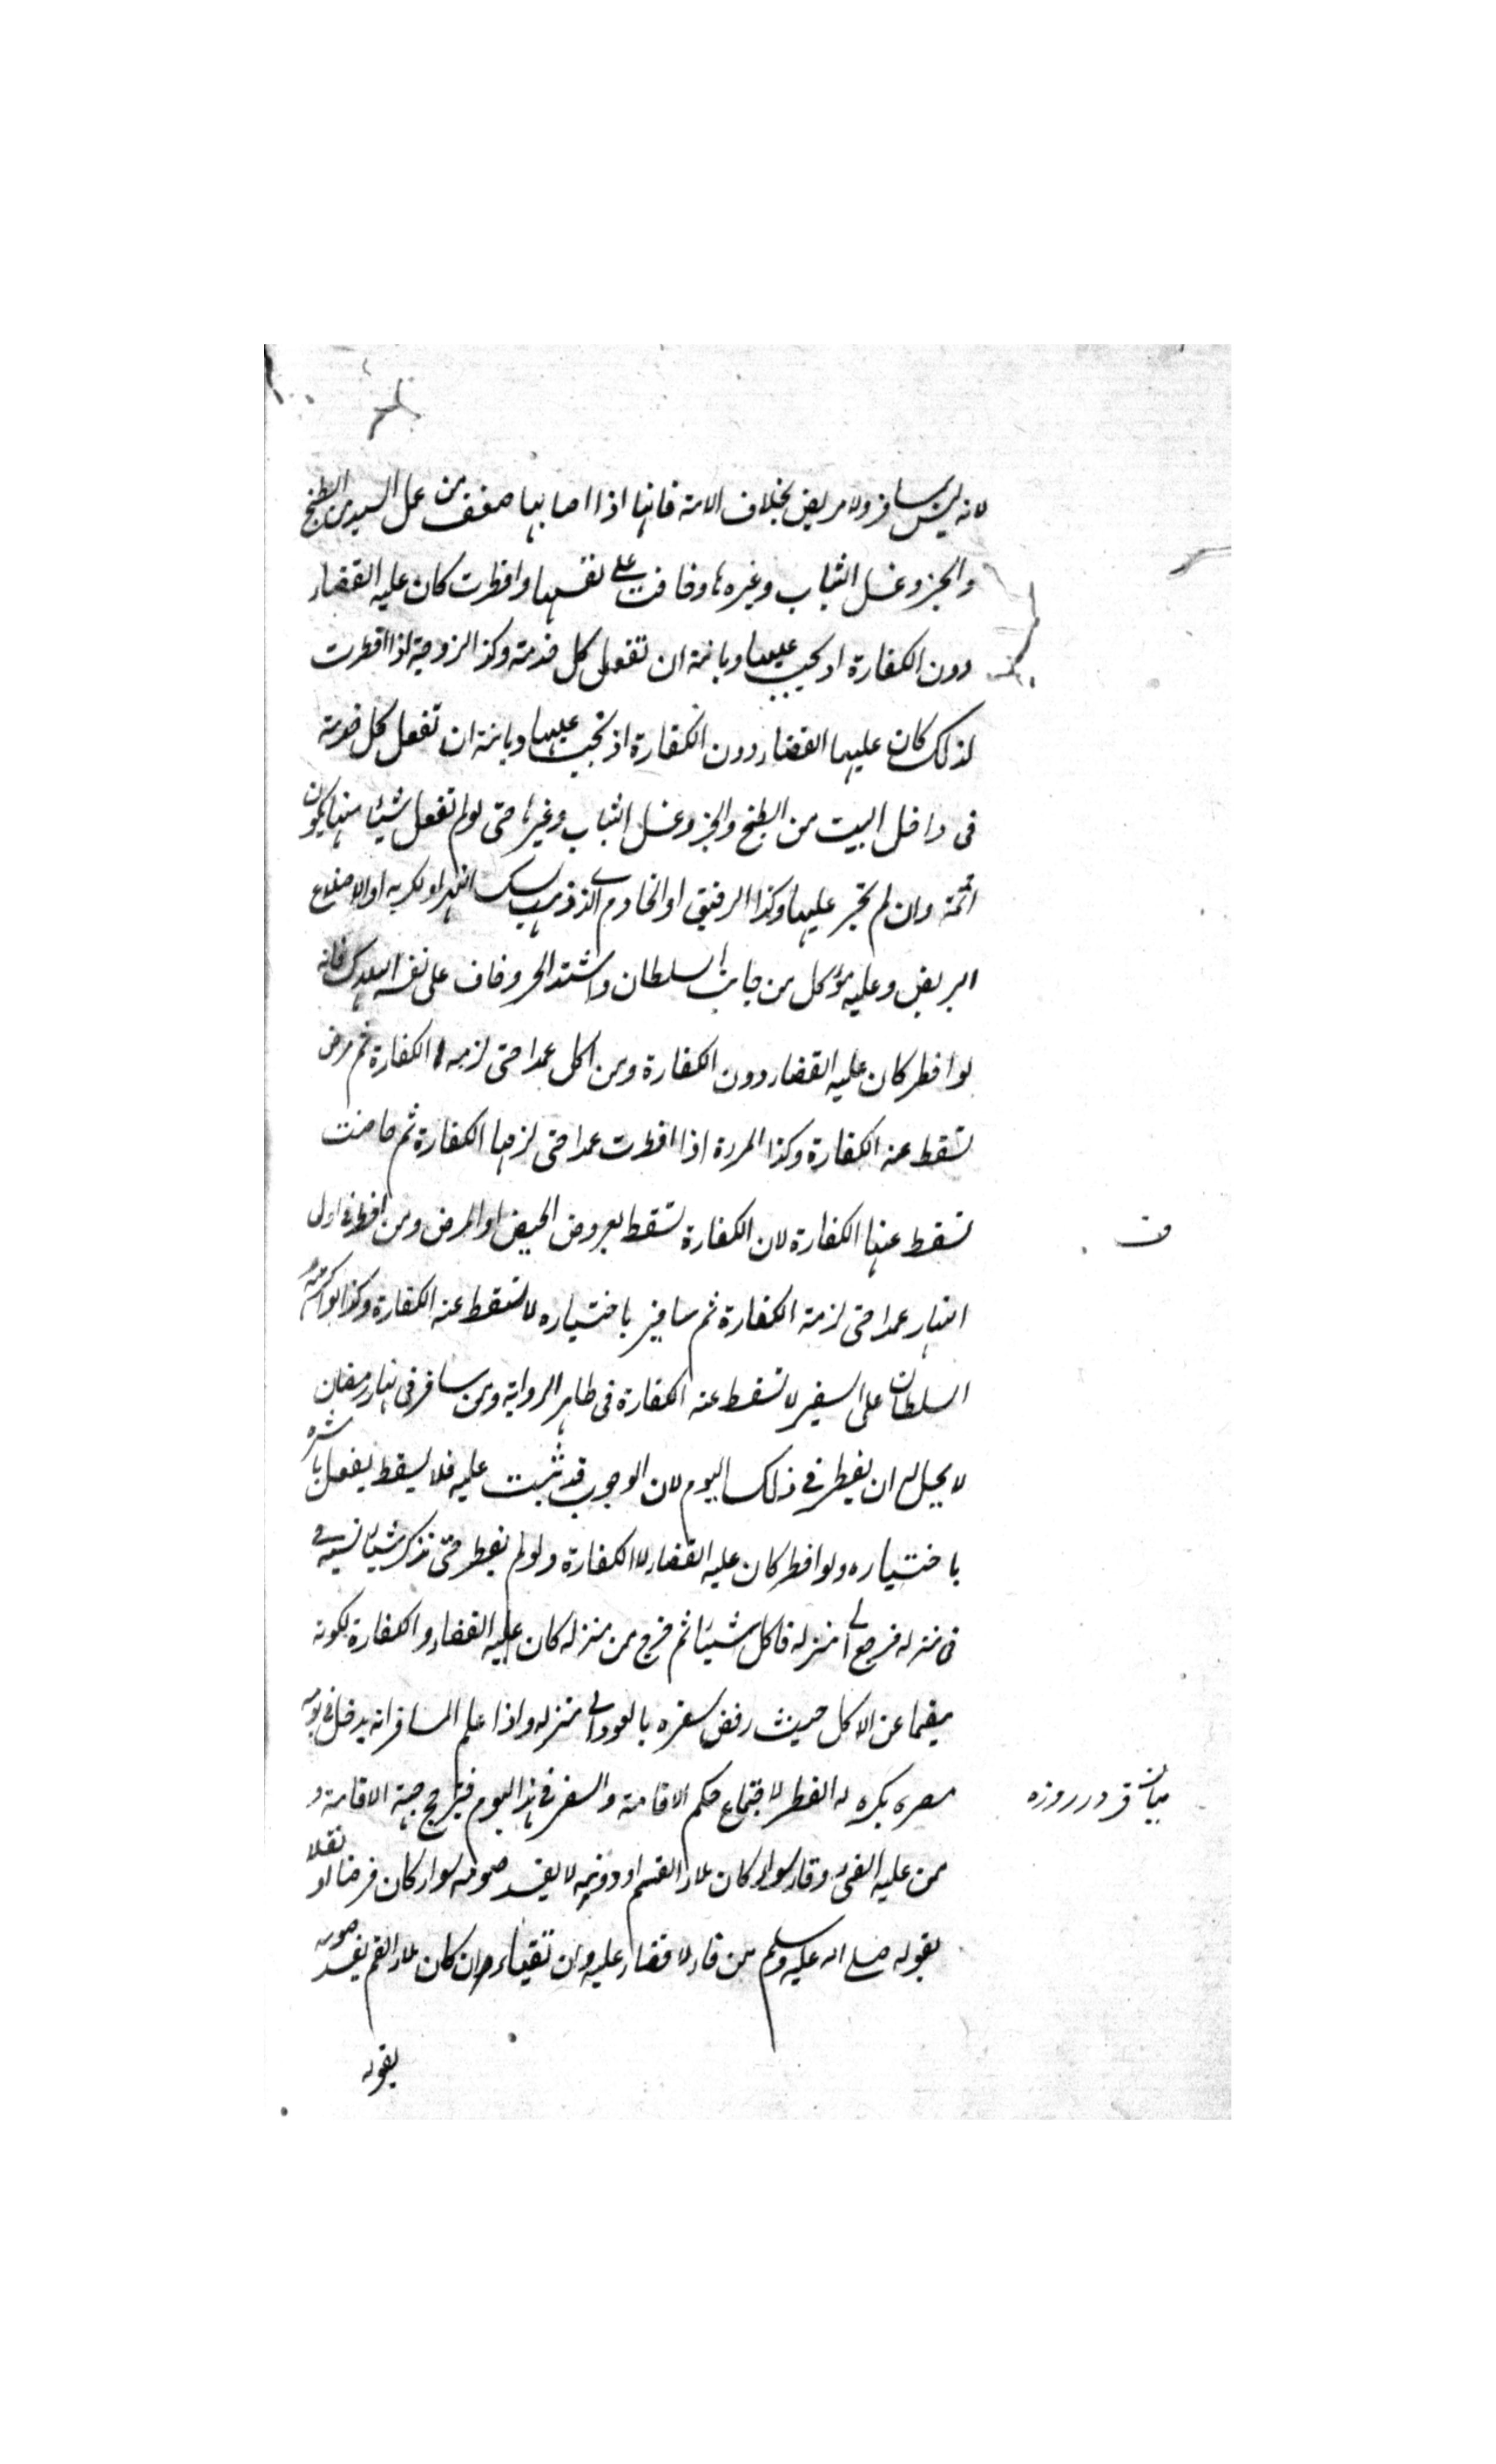 لانه ليس بمسافر ولا مريض بخلاف الامة فانها اذا اصابها ضعف من عمل السيد من الطبخ
والخبز وغسل الثياب وغيرها وخافت على نفسها وافطرت كان عليه القضاء
دون الكفارة اذ يجب عليها ديانة ان تفعل كل خدمة وكذا الزوجة اذا افطرت
لذلك كان عليها القضاء دون الكفارة اذ يجب عليها ديانة ان تفعل كل خدمة
فى داخل البيت من الطبخ والخبز وغسل الثياب وغيرها حتى لو لم تفعل شيئا منها يكون
اثمة وان لم تجبر عليها وكذا الرفيق او الخادم الذى ذهب لسد النهر او لكريه او لاصلاح
البريض وعليه موكل من جانب السلطان واشتد الحر وخاف على نفسه الهلاك فانه
لو افطر كان عليه القضاء دون الكفارة ومن اكل عمدا حتى لزمه الكفارة ثم مرض
تسقط عنه الكفارة وكذا المرءة اذا افطرت عمدا حتى لزمها الكفارة ثم حاضت
تسقط عنها الكفارة لان الكفارة تسقط بعروض الحيض او المرض ومن افطر فى اول
النهار عمدا حتى لزمته الكفارة ثم سافر باختياره لا تسقط عنه الكفارة وكذا لو اكرهه
السلطان على السفر لا تسقط عنه الكفارة فى ظاهر الرواية ومن سافر فى نهار رمضان
لا يحل له ان يفطر فى ذلك اليوم لان الوجوب قد ثبت عليه فلا يسقط بفعل باشره
باختياره ولو افطر كان عليه القضاء لا الكفارة ولو لم يفطر حتى تذكر شيئا نسيه
فى منزله فرجع الى منزله فاكل شيئا ثم خرج من منزله كان عليه القضاء والكفارة لكونه
مقيما عن الاكل حيث رفض سفره بالعود الى منزله واذا علم المسافر انه يدخل فى يومه
مصره يكره له الفطر لاجتماع حكم الاقامة والسفر فى هذا اليوم فيترجح جهة الاقامة و
بيان قى در روزه
من عليه القئ وقاء سواء كان ملا الفم او دونه لا يفسد صومه سواء كان فرضا او نفلا
لقوله صلى الله عليه وسلم من قاء لا قضاء عليه وان تقياء وان كان ملا الفم يفسد صومه
لقوله